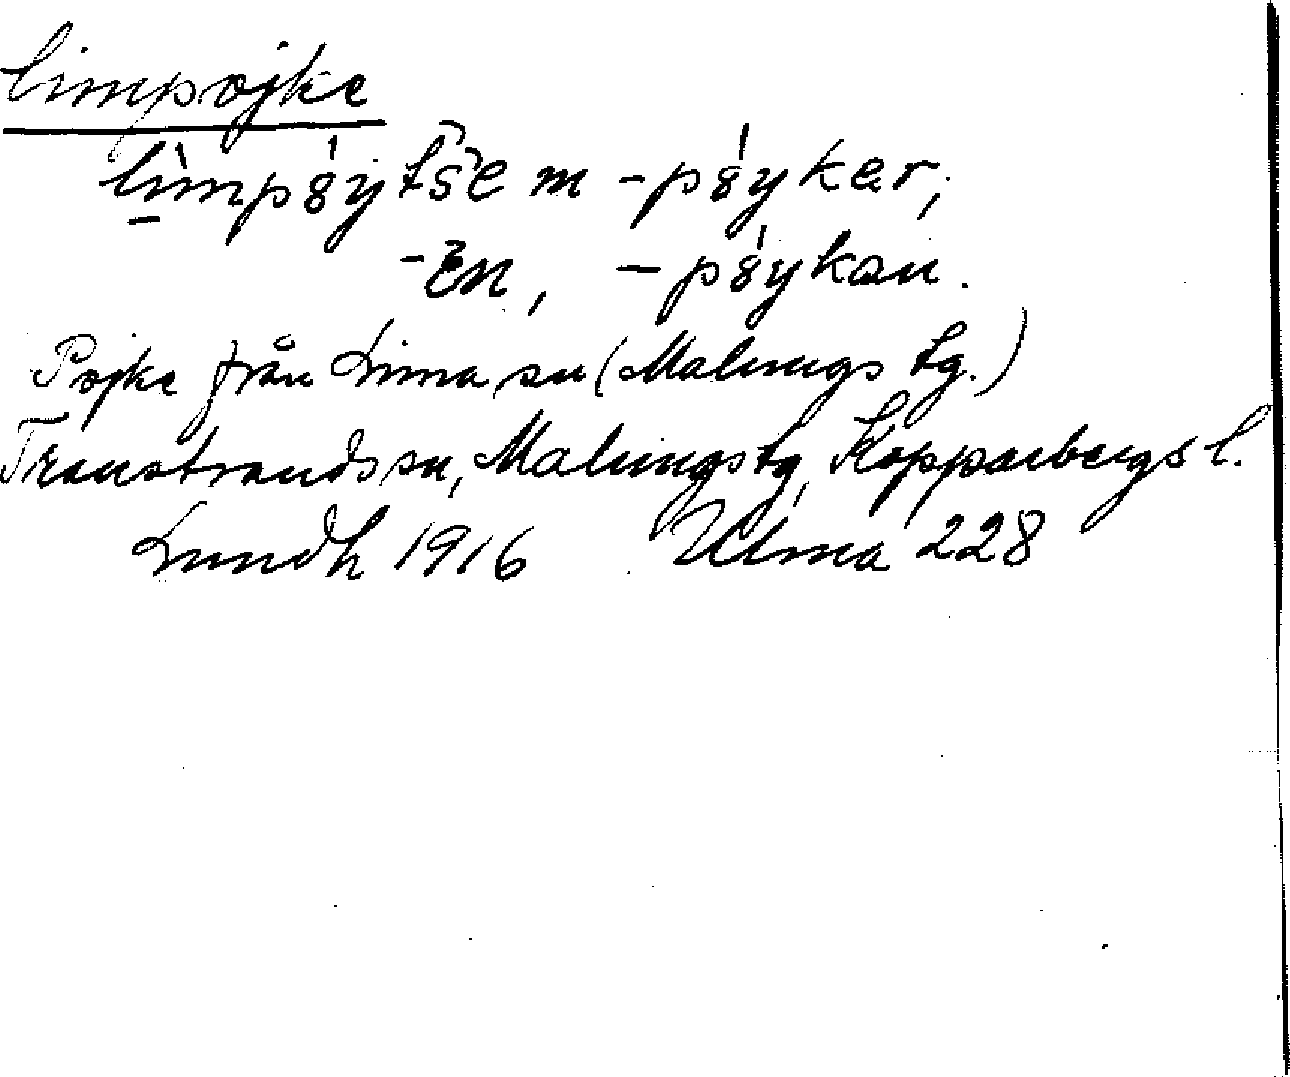 limpojke
lìmpá̤ytše m -pá̤yker,
-en, -pá̤ykan.
Pojke från Lima sn (Malungs tg.)
Transtrands sn, Malungs tg, Kopparbergs l.
Lundh 1916 Ulma 228